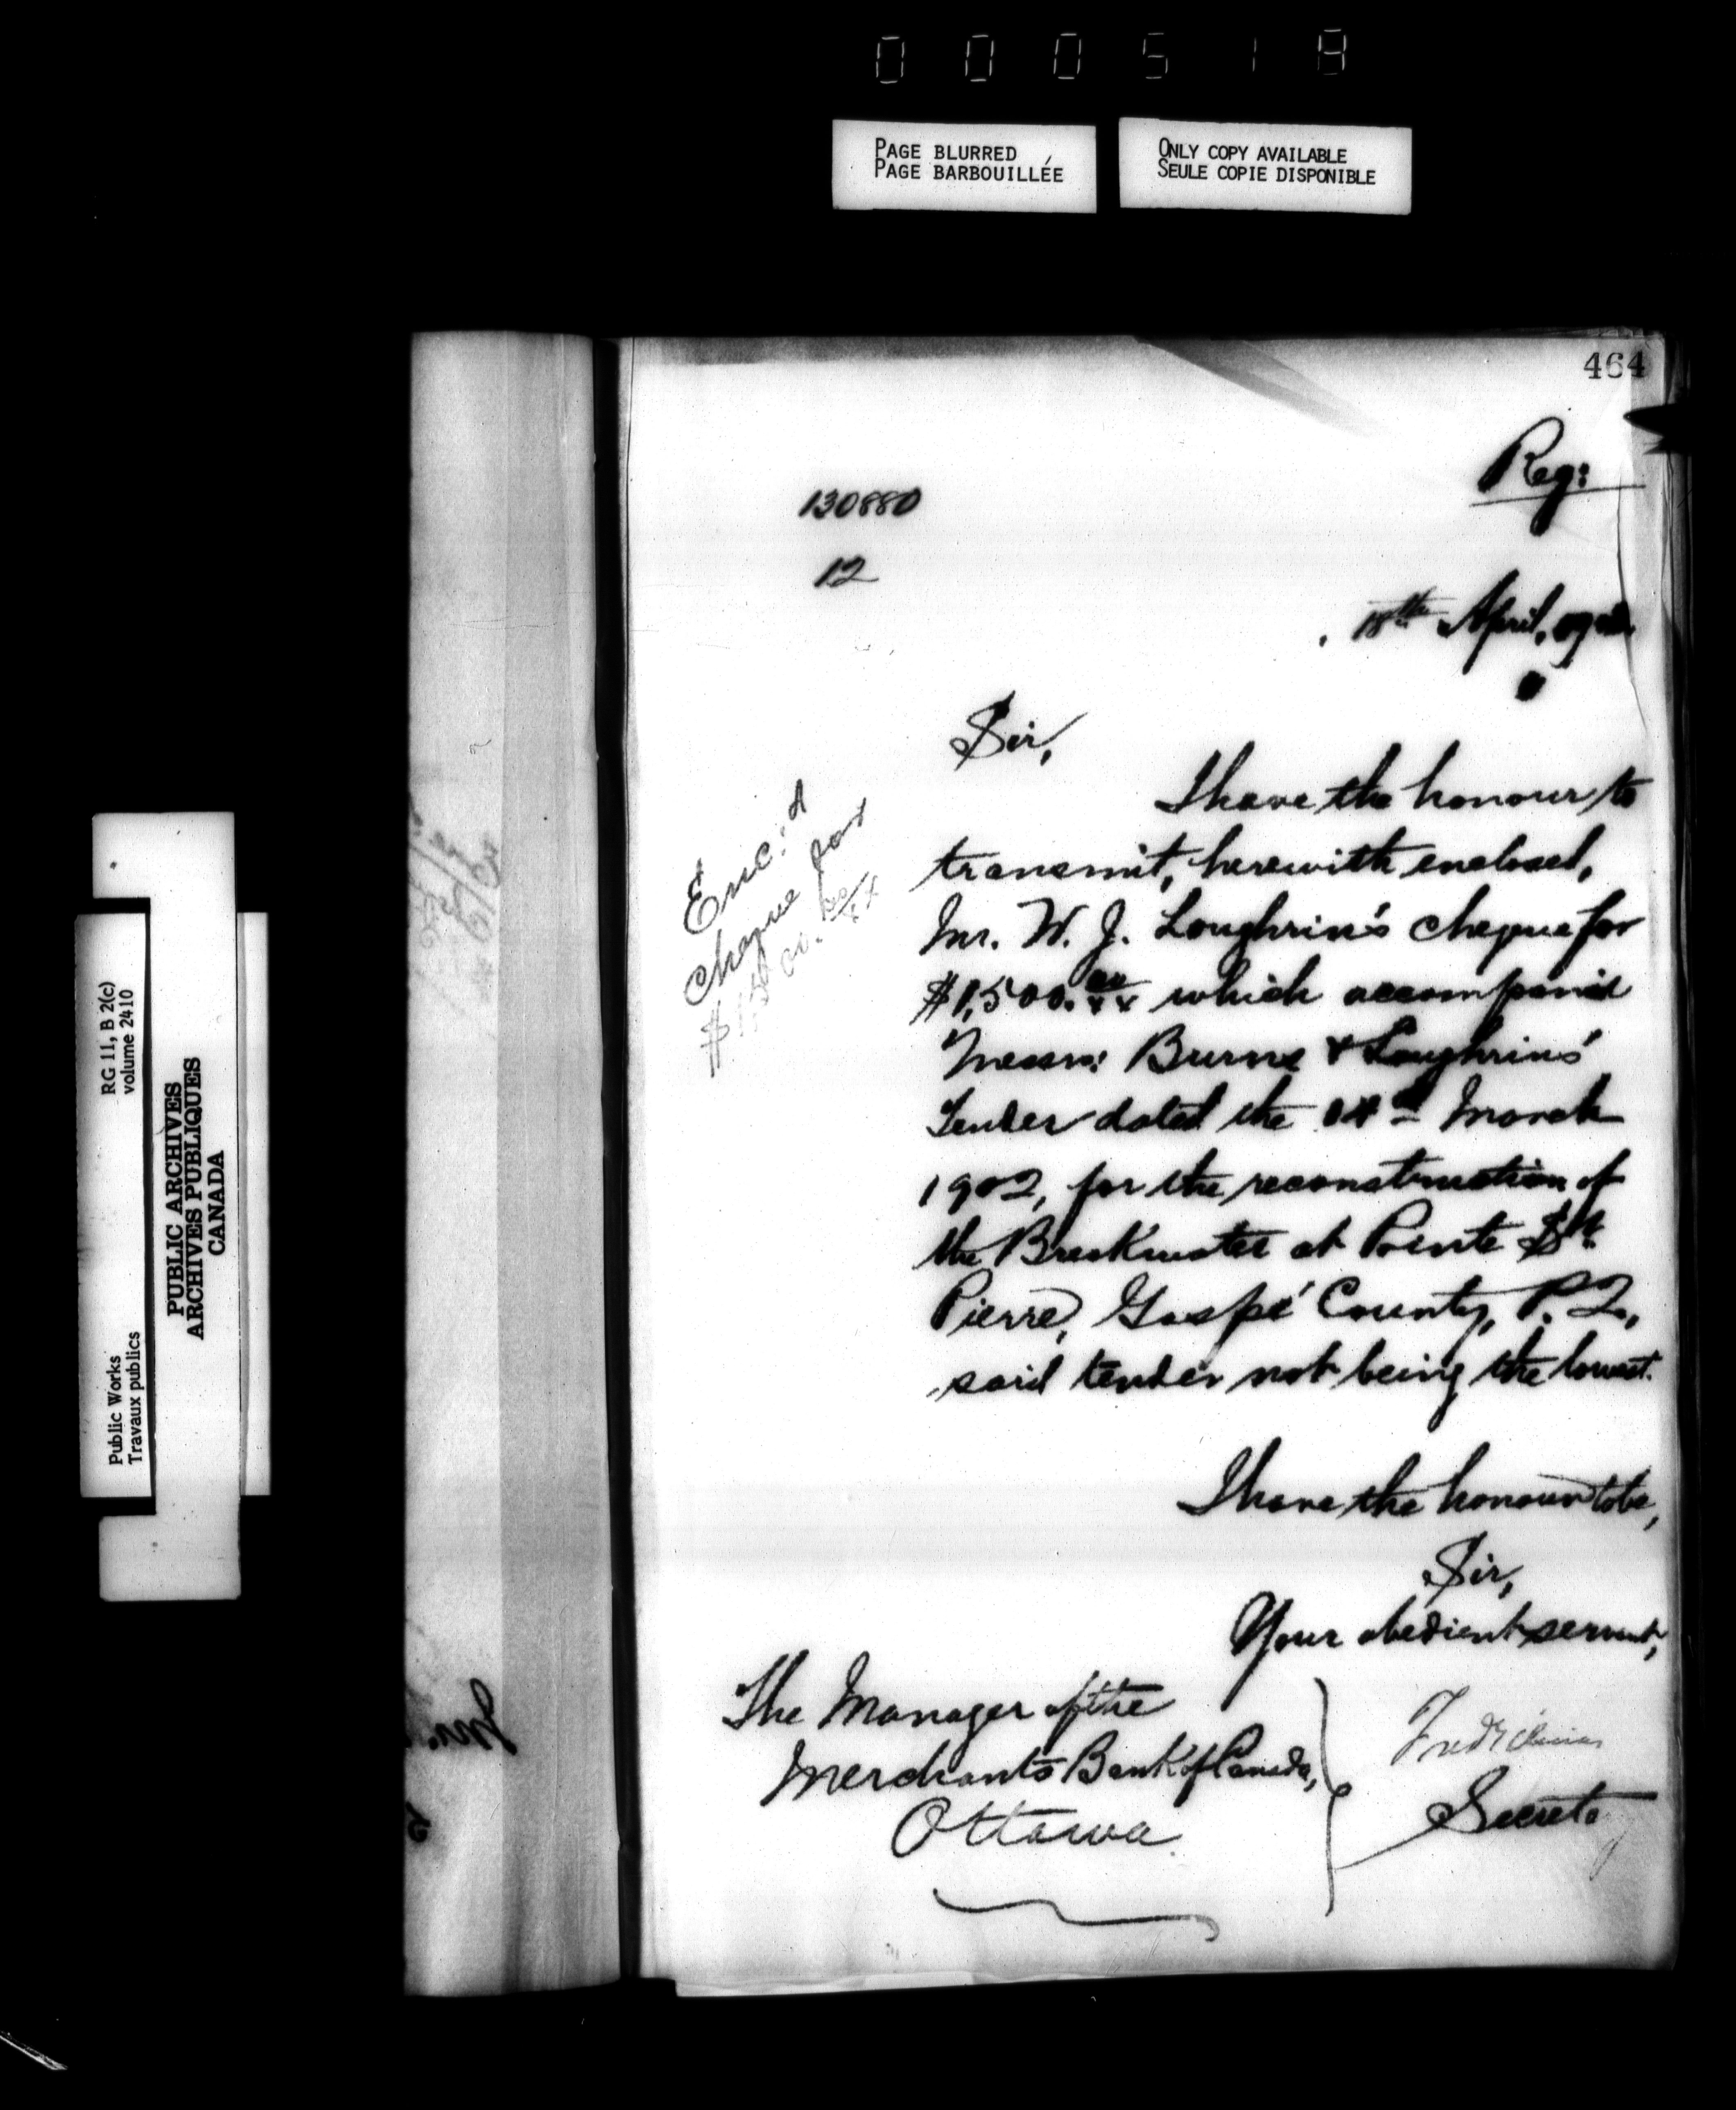 000518
PAGE BLURRED
PAGE BARBOUILLÉE
ONLY COPY AVAILABLE
SEULE COPIE DISPONIBLE
464
Reg:
130880
12
18th April, 1902
Sir,
I have the honour to
transmit, herewith enclosed,
Mr. W. J. Loughrin's cheque for
$1,500.00/xx which accompanied
Messrs: Burns & Loughrin's
Tender dated the March
1902, for the reconstruction of
the Breakwater at Pointe St.
Pierre, Gaspé County, P.Q.,
said tender not being the lowest.
Enc:d
cheque for
$1,500.00/xx
I have the honour to be,
Sir,
Your obedient servant,
The Manager of the
Merchants Bank of Canada,
Ottawa.
Fred Gélinas
Secretary
RG 11, B 2(c)
volume 2410
Public Works
Travaux publics
PUBLIC ARCHIVES
ARCHIVES PUBLIQUES
CANADA